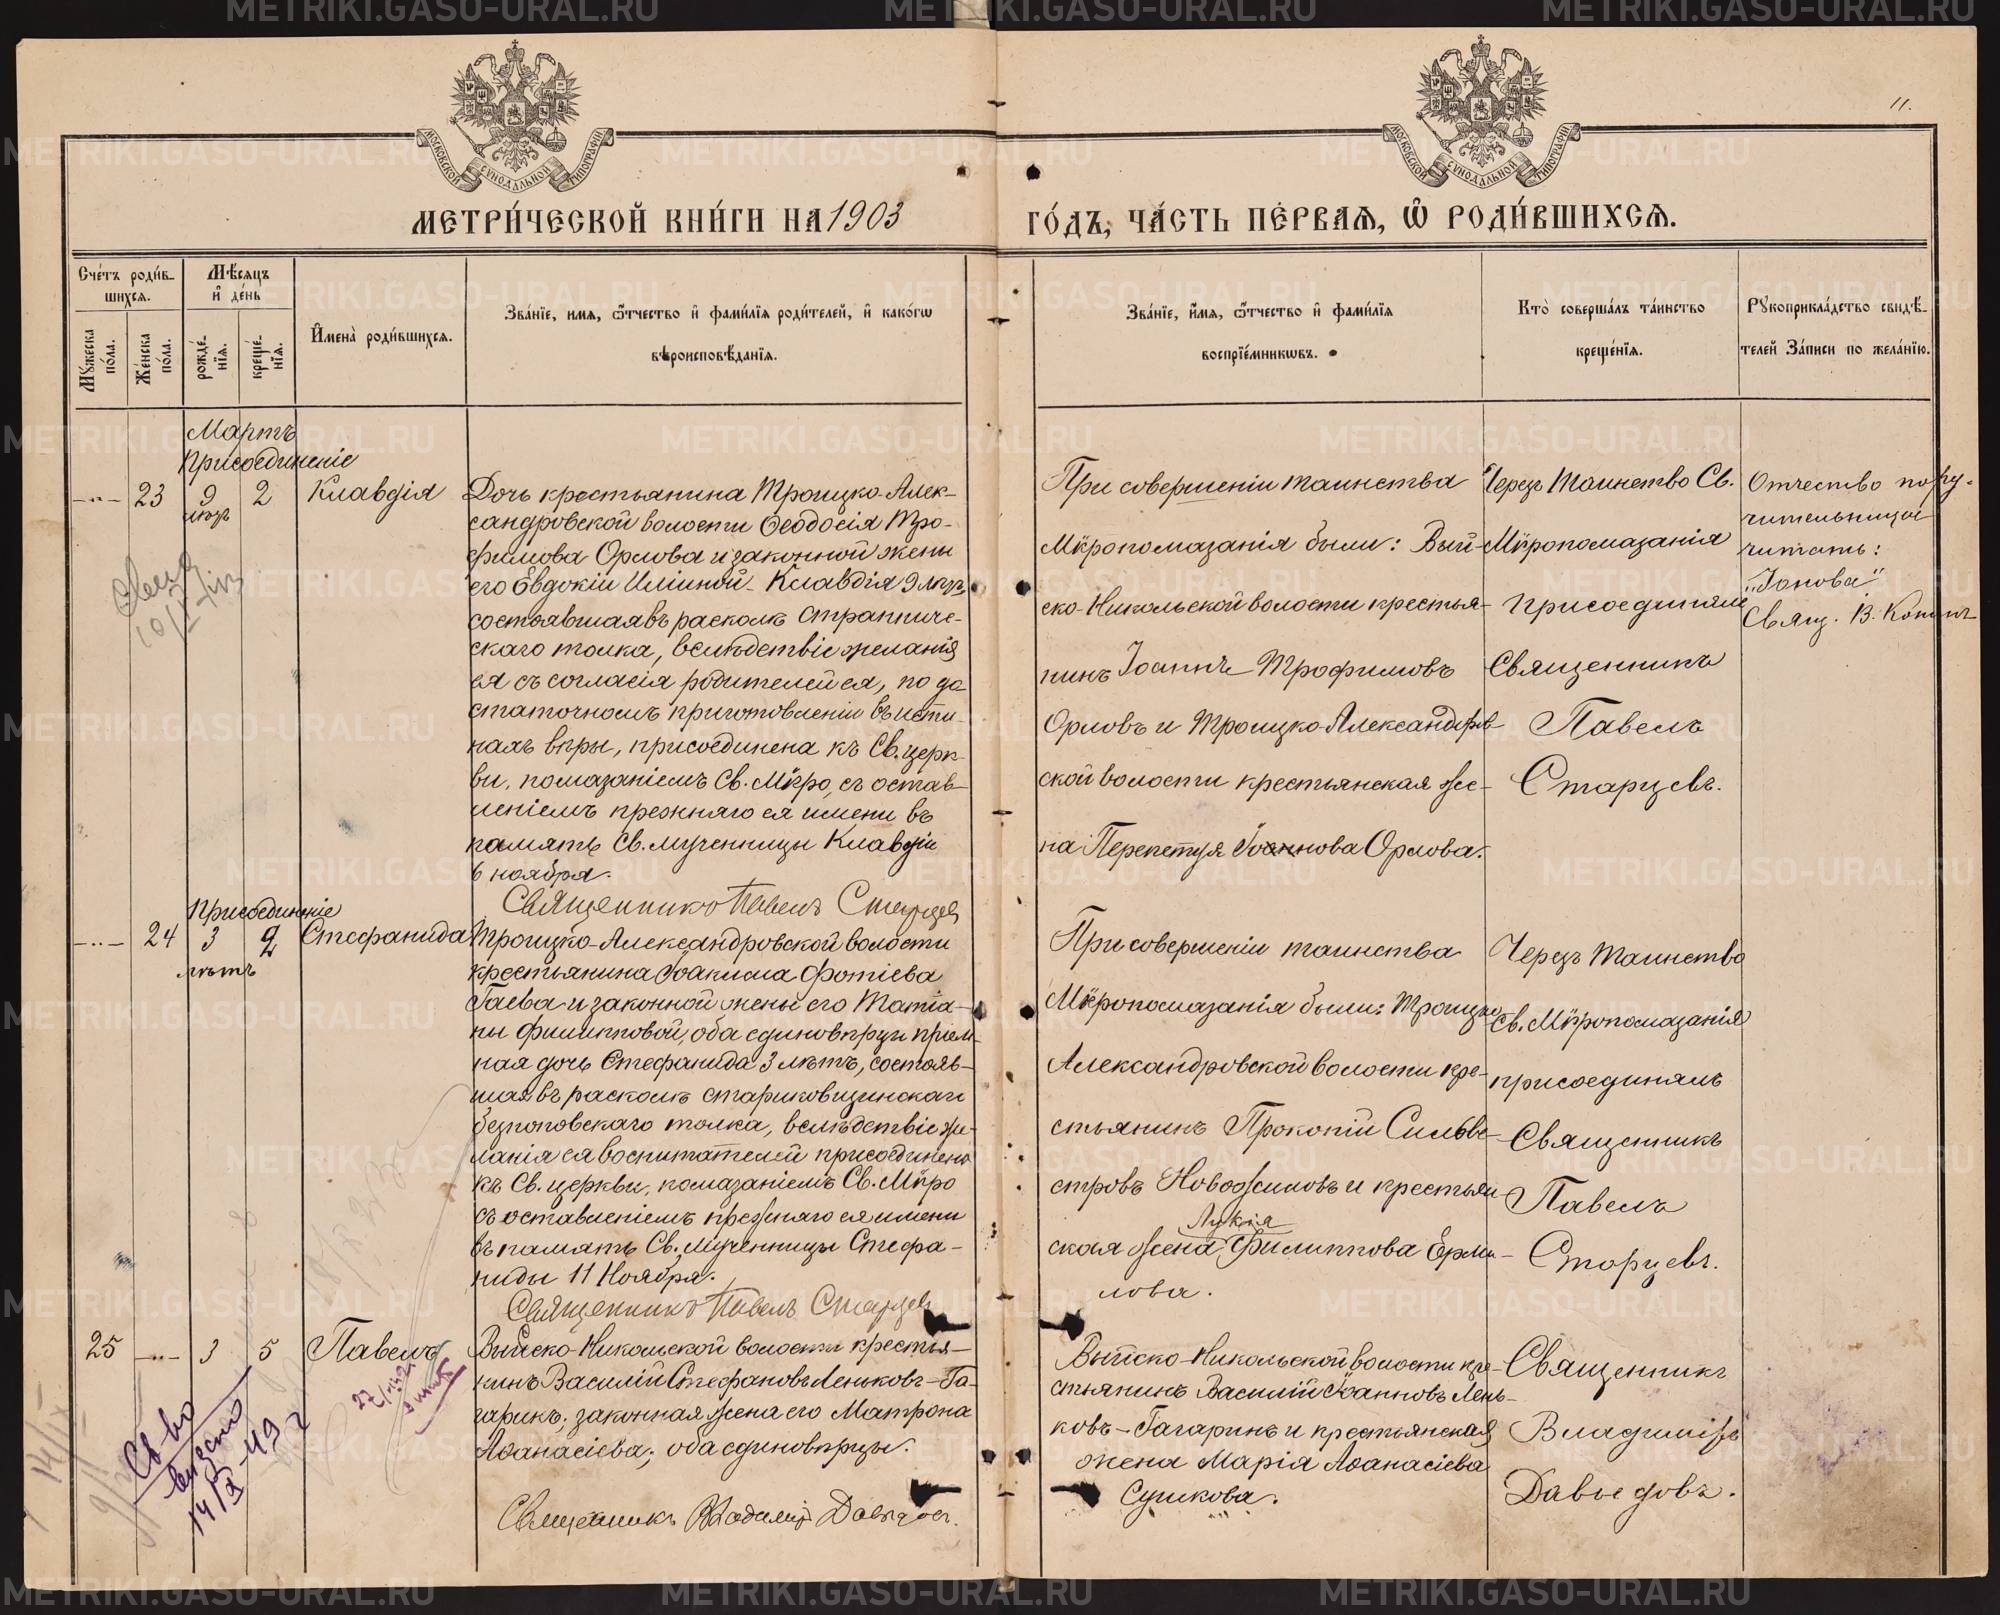 11.
МОСКОВСКОЙ СѴНОДАЛЬНОЙ ТИПОГРАФІИ
МОСКОВСКОЙ СѴНОДАЛЬНОЙ ТИПОГРАФІИ
МЕТРИ́ЧЕСКОЙ КНИ́ГИ НА 1903
ГО́ДЪ, ЧА́СТЬ ПЕ́РВАѦ, Ѡ҆ РОДИ́ВШИХСѦ.
Сче́тъ роди́в-
шихсѧ.
Мꙋ́жеска по́ла.
Же́нска по́ла.
Мѣ́сѧцъ
и҆ де́нь
рожде́нїѧ.
креще́нїѧ.
И҆мена̀ роди́вшихсѧ.
Зва́нїе, имѧ, ѻ҆́тчество и҆ фами́лїѧ роди́телей, и҆ како́гѡ
вѣроисповѣ́данїѧ.
Зва́нїе, и҆́мѧ, ѻ҆́тчество и҆ фами́лїѧ
воспрїе́мникѡвъ.
Кто̀ соверша́лъ та́инство
креще́нїѧ.
Рꙋкоприкла́дство свидѣ́-
телей За́писи по жела́нїю.
Мартъ
Присоединеніе
23
9
2
Клавдія
лѣтъ
Дочь крестьянина Троицко-Алек-
сандровской волости Ѳеодосія Тро-
фимова Орлова и законной жены
его Евдокіи Иліиной Клавдія 9 лѣтъ,
состоявшая въ расколѣ страмниче-
скаго толка, вслѣдствіе желанія
ея съ согласія родителей ея, по до-
статочномъ приготовленіи въ исти-
нахъ вѣры, присоединена къ Св. церк-
ви, помазаніемъ Св. Мѵро, съ остав-
леніемъ прежняго ея имени въ
память Св. мученницы Клавдіи
6 ноября.
Священникъ Павелъ Старцев
При совершеніи таинства
Мѵропомазанія были: Вый-
ско-Никольской волости крестья-
нинъ Іоаннъ Трофимовъ
Орловъ и Троицко-Александров-
ской волости крестьянская же-
на Перепетуя Іоаннова Орлова.
Черезъ Таинство Св.
Мѵропомазанія
присоединялъ
Священникъ
Павелъ
Старцевъ.
Отчество пору-
чительницы
читать:
"Іонова"
Свящ. В.
Присоединеніе
24
3
2
Стефанида
лѣтъ
Троицко-Александровской волости
крестьянина Іоакима Фотіева
Гаева и законной жены его Татіа-
ны Филипповой, оба единовѣрцы пріем-
ная дочь Стефанида 3 лѣтъ, состояв-
шая въ расколѣ стариковщинскаго
безпоповскаго толка, вслѣдствіе же-
ланія ея воспитателей присоединена
къ Св. церкви, помазаніемъ Св. Мѵро
съ оставленіемъ прежняго ея имени
въ память Св. мученницы Стефа-
ниды 11 Ноября.
Священникъ Павелъ Старцев
При совершеніи таинства
Мѵропомазанія были: Троицко
Александровской волости кре-
стьянинъ Прокопій Сильве-
стровъ Новожиловъ и крестьян
Лукія
ская жена Филиппова Ерми-
лова.
Черезъ Таинство
Св. Мѵропомазанія
присоединялъ
Священникъ
Павелъ
Старцевъ.
25
3
5
Павелъ
Выйско-Никольской волости крестья-
нинъ Василій Стефановъ Леньковъ-Га-
гаринъ; законная жена его Матрона
Аѳанасіева; оба единовѣрцы.
Священникъ Владимір Давыдов.
Выйско-Никольской волости кре-
стьянинъ Василій Іоанновъ Лень-
ковъ-Гагаринъ и крестьянская
жена Марія Аѳанасіева
Сушкова.
Священникъ
Владиміръ
Давыдовъ.
Св-во
14/IX-49 г
METRIKI.GASO-URAL.RU